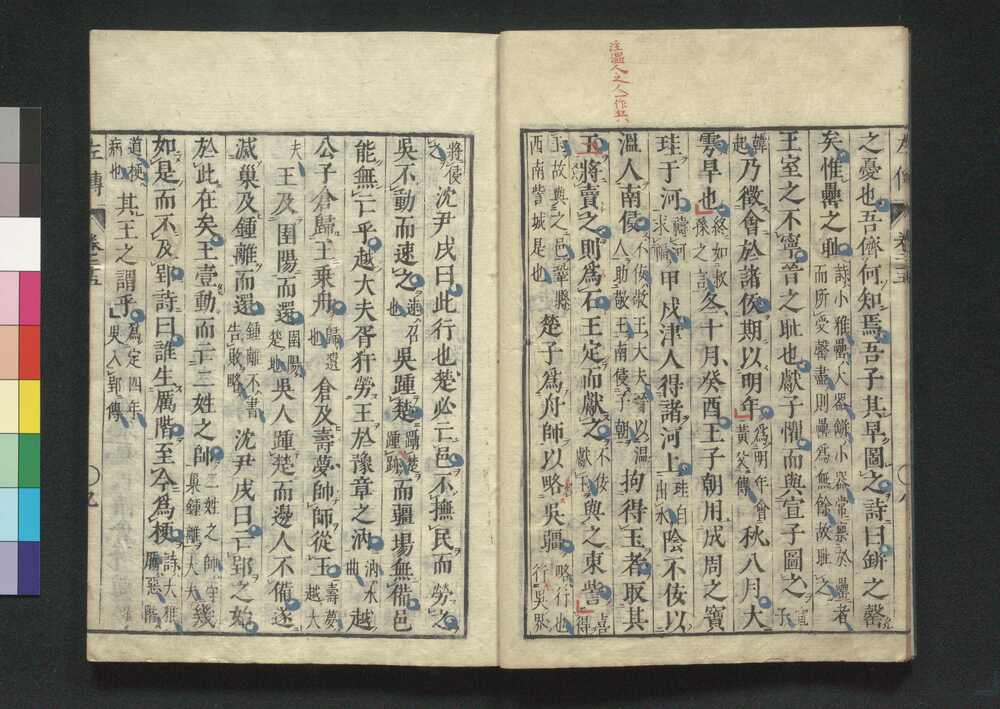 注溫人之人一作兵
之憂也吾儕何知焉吾子其早圖之詩曰缾之罄
矣惟罍之恥詩小雅罍大器缾小器常稟於罍者而所受罄盡則罍爲無餘故恥之
王室之不寧晉之恥也獻子懼而與宣子圖之宣子
韓起乃徵會於諸侯期以明年爲明年會黃父傳秋八月大
雩旱也終如叔孫之言冬十月癸酉王子朝用成周之寶
珪于河禱河求福甲戌津人得諸河上珪自出水陰不佞以
溫人南侵不佞敬王大夫晉以溫人助敬王南侵子朝拘得玉者取其
玉將賣之則爲石王定而獻之不佞獻玉與之東訾喜得
玉故與之邑鞏縣西南訾城是也楚子爲舟師以略吳疆略行也行吳界
將侵之沈尹戌曰此行也楚必亡邑不撫民而勞之
吳不動而速之速召也吳踵楚躡楚踵跡而疆場無備邑
能無亡乎越大夫胥犴勞王於豫章之汭汭水曲越
公子倉歸王乘舟歸遺也倉及壽夢帥師從王壽夢越大
夫王及圉陽而還圉陽楚地吳人踵楚而邊人不備遂
滅巢及鍾離而還鍾離不書告敗略沈尹戌曰亡郢之始
於此在矣王壹動而亡二姓之帥二姓之帥守巢鍾離大夫幾
如是而不及郢詩曰誰生厲階至今爲梗詩大雅厲惡階
道梗病也其王之謂乎爲定四年吳入郢傳
左傳